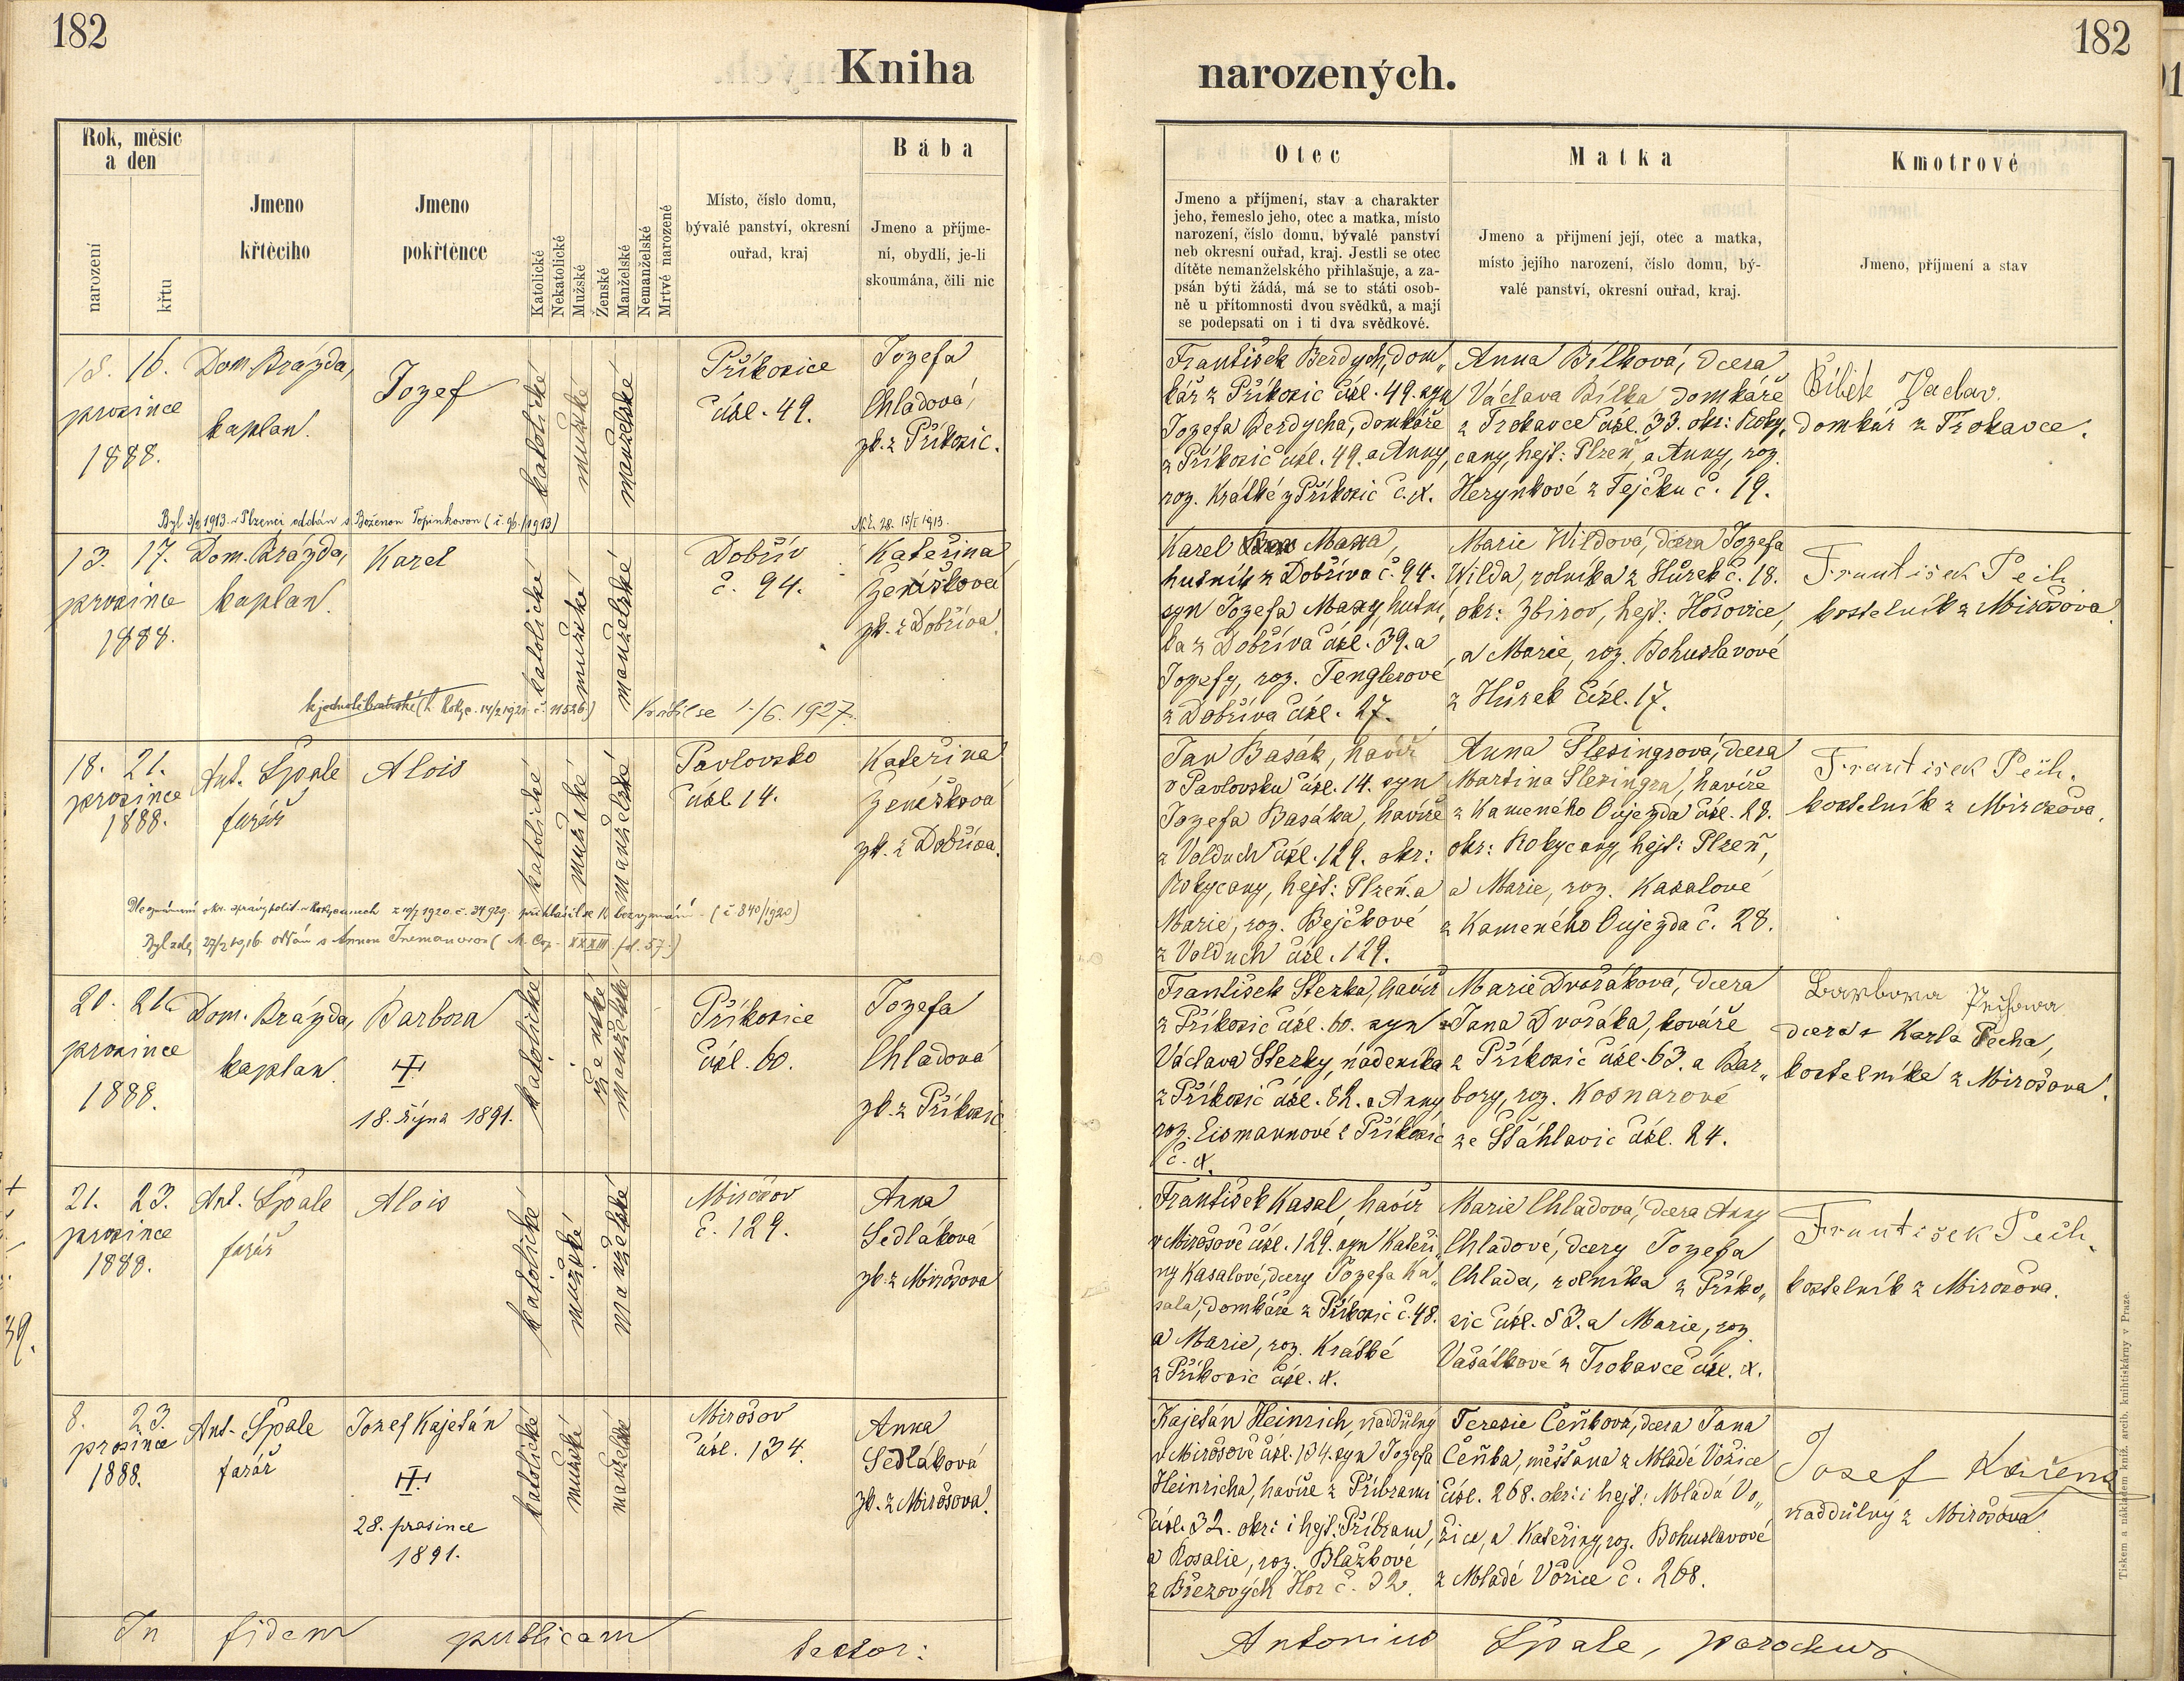 182
Kniha
Rok, měsíc
a den
narození
křtu
Jmeno
křtěcího
Jmeno
pokřtěnce
Katolické
Nekatolické
Mužské
Ženské
Manželské
Nemanželské
Mrtvé narozené
Místo, číslo domu,
bývalé panství, okresní
ouřad, kraj
Bába
Jmeno a příjme-
ní, obydlí, je-li
skoumána, čili nic
18. 16. Dom. Brázda,
prosince kaplan.
1888.
Jozef
katolické
mužské
manželské
Příkosice
čísl. 49.
Jozefa
Chladová,
zk. z Příkosic.
Byl 3/2 1913 v Plzenci oddán s Boženou Topinkovou (č. 96/1913)
Nč. 28. 15/I 1913.
13. 17. Dom. Brázda,
prosince kaplan.
1888.
Karel
katolické
mužské
manželské
Dobřív
č. 94.
Kateřina
Ženíšková
zk. z Dobříva.
Vrátil se 1/6. 1927.
18. 21. Ant. Špale
prosince farář
1888.
Alois
katolické
mužské
manželské
Pavlovsko
čísl. 14.
Kateřina
Ženíšková
zk. z Dobříva.
přihlásil se k bezvyznání (č 840/1920)
Byl zde 27/2 1916 oddán s Annou
20. 21. Dom. Brázda,
prosince kaplan
1888.
Barbora
18. října 1891.
katolické
ženské
manželské
Příkosice
čísl. 60.
Jozefa
Chladová
zk. z Příkosic
21. 23. Ant. Špale
prosince farář
1888.
Alois
katolické
mužské
manželské
Mirošov
č. 129.
Anna
Sedláková
zk. z Mirošova
39.
8. 23. Ant. Špale
prosince farář
1888.
Jozef Kajetán
28. prosince
1891.
katolické
mužské
manželské
Mirošov
čísl. 134.
Anna
Sedláková
zk. z Mirošova.
In fidem publicam testor:
182
narozených.
Otec
Jmeno a příjmení, stav a charakter
jeho, řemeslo jeho, otec a matka, místo
narození, číslo domu, bývalé panství
neb okresní ouřad, kraj. Jestli se otec
dítěte nemanželského přihlašuje, a za-
psán býti žádá, má se to státi osob-
ně u přítomnosti dvou svědků, a mají
se podepsati on i ti dva svědkové.
Matka
Jmeno a přijmení její, otec a matka,
místo jejího narození, číslo domu, bý-
valé panství, okresní ouřad, kraj.
Kmotrové
Jmeno, příjmení a stav
František Berdych, dom„
kář z Příkosic čísl. 49. syn
Jozefa Berdycha, domkáře
z Příkosic čísl. 49. a Anny,
roz. Krátké z Příkosic č. X.
Anna Bílková, dcera
Václava Bílka domkáře
z Trokavce čísl. 33. okr: Roky„
cany, hejt: Plzeň, a Anny, roz.
Herynkové z Těječku č. 19.
Bílek Vaclav.
domkář z Trokavce.
Karel Maxa,
hutník z Dobříva č. 94.
syn Jozefa Maxy, hutní„
ka z Dobříva čísl. 39. a
Jozefy, roz. Tenglerové
z Dobříva čísl. 27.
Marie Wildová, dcera Jozefa
Wilda, rolníka z Hůrek č. 18.
okr: Zbirov, hejt: Hořovice,
a Marie, roz. Bohuslavové
z Hůrek čísl. 17.
František Pech
kostelník z Mirošova.
Jan Basák, havíř
v Pavlovsku čísl. 14. syn
Jozefa Basáka, havíře
z Volduch čísl. 129. okr:
Rokycany, hejt: Plzeň. a
Marie, roz. Bejčkové
z Volduch čísl. 129.
Anna Slesingrová, dcera
Martina Slesingra, havíře
z Kameného Oujezda čísl. 28.
okr: Rokycany, hejt: Plzeň,
a Marie, roz. Kasalové
z Kameného Oujezda č. 28.
František Pech.
kostelník z Mirošova.
František Stezka, havíř
z Příkosic čísl. 60. syn
Václava Stezky, nádeníka
z Příkosic čísl. 82. a Anny
roz. Eismannové z Příkosic
č. X.
Marie Dvořáková, dcera
Jana Dvořáka, kováře
z Příkosic čísl. 63. a Bar„
bory, roz. Kosnarové
ze Štáhlavic čísl. 24.
Barbora Pechova
dcera Karla Pecha,
kostelníka z Mirošova.
František Kasal, havíř
v Mirošově čísl. 129. syn Kateři„
ny Kasalové, dcery Jozefa Ka„
sala, domkáře z Příkosic č. 48.
a Marie, roz. Krátké
z Příkosic čísl. X.
Marie Chladová, dcera Anny
Chladové, dcery Jozefa
Chlada, rolníka z Příko„
sic čísl. 53. a Marie, roz.
Vašátkové z Trokavce čísl. X.
František Pech.
kostelník z Mirošova.
Kajetán Heinrich, naddůlný
v Mirošově čísl. 134. syn Jozefa
Heinricha, havíře z Příbrami
čísl. 32. okr: i hejt: Příbram,
a Rosalie, roz. Blažkové
z Březových Hor č. 32.
Terezie Čeňková, dcera Jana
Čeňka, měšťana z Mladé Vožice
čísl. 268. okr: i hejt: Mladá Vo„
žice, a Kateřiny, roz. Bohuslavové
z Mladé Vožice č. 268.
Josef Kořený
naddůlný z Mirošova.
Antonius Špale, parochus.
Tiskem a nákladem kníž. arcib. knihtiskárny v Praze.